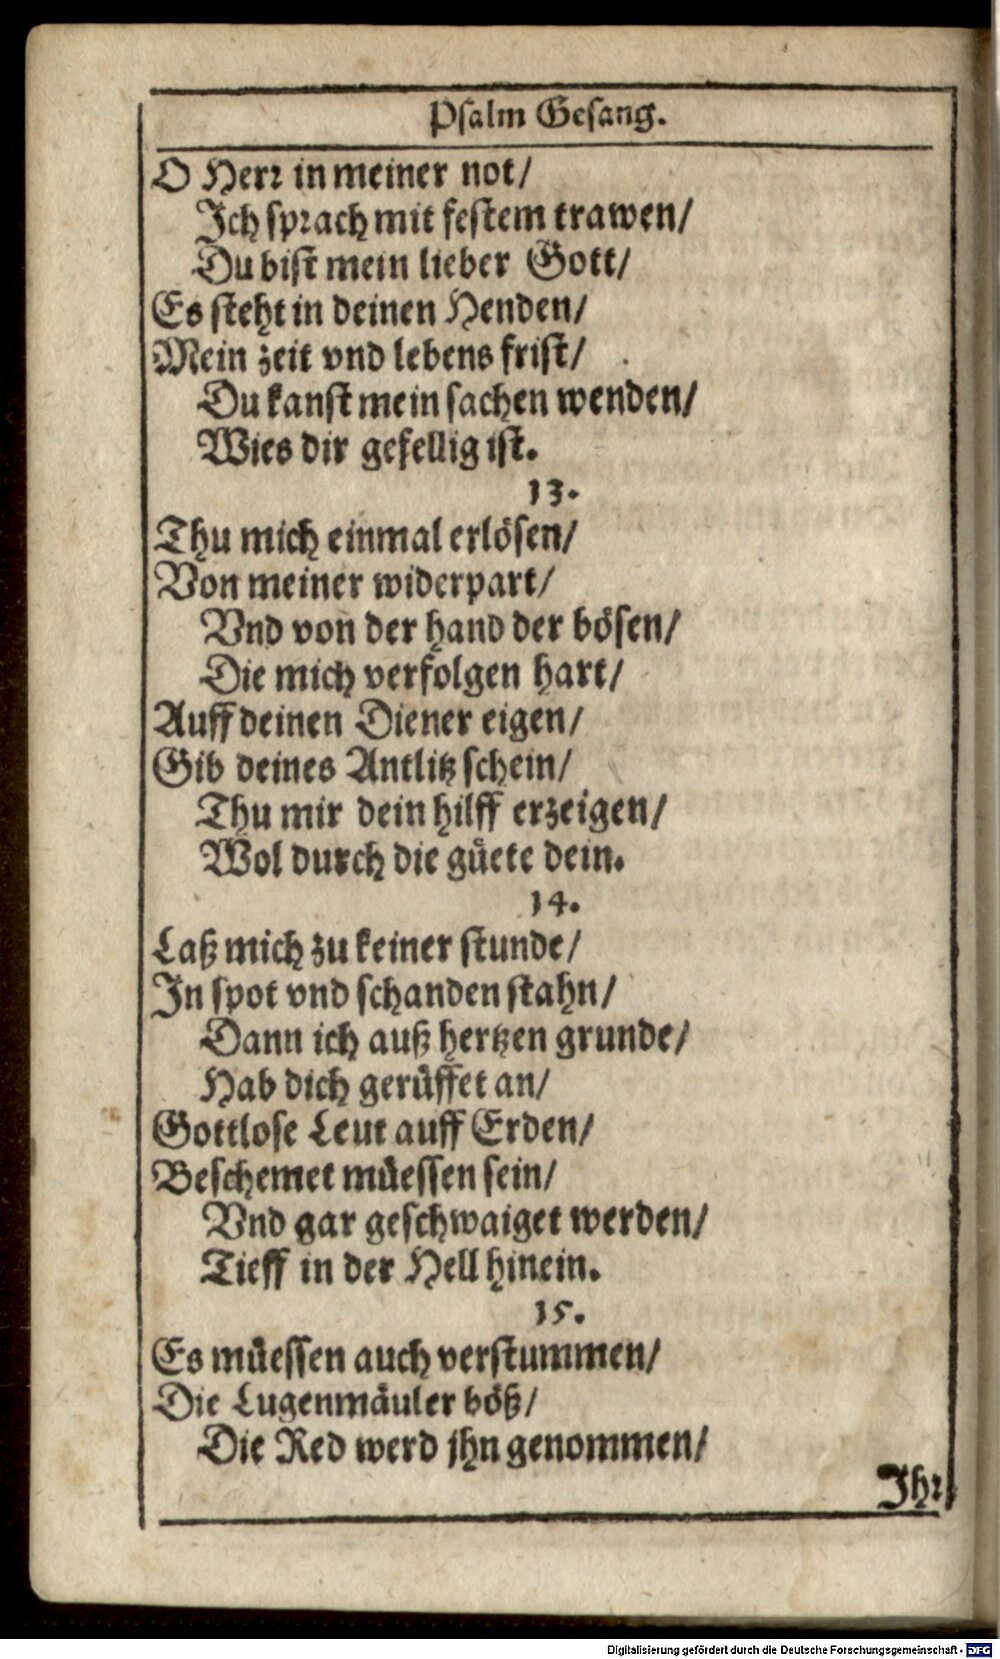 Psalm Gesang.
O Herꝛ in meiner not/
Ich spꝛach mit festem trawen/
Du bist mein lieber Gott/
Es steht in deinen Henden/
Mein zeit vnd lebens frist/
Du kanst mein sachen wenden/
Wies dir gefellig ist.
13.
Thu mich einmal erlösen/
Von meiner widerpart/
Vnd von der hand der bösen/
Die mich verfolgen hart/
Auff deinen Diener eigen/
Gib deines Antlitz schein/
Thu mir dein hilff erzeigen/
Wol durch die güete dein.
14.
Laß mich zu keiner stunde/
In spot vnd schanden stahn/
Dann ich auß hertzen grunde/
Hab dich gerüffet an/
Gottlose Leut auff Erden/
Beschemet müessen sein/
Vnd gar geschwaiget werden/
Tieff in der Hell hinein.
15.
Es müessen auch verstummen/
Die Lugenmäuler böß/
Die Red werd jhn genommen/
Ihꝛ
Digitalisierung gefördert durch die Deutsche Forschungsgemeinschaft - DFG